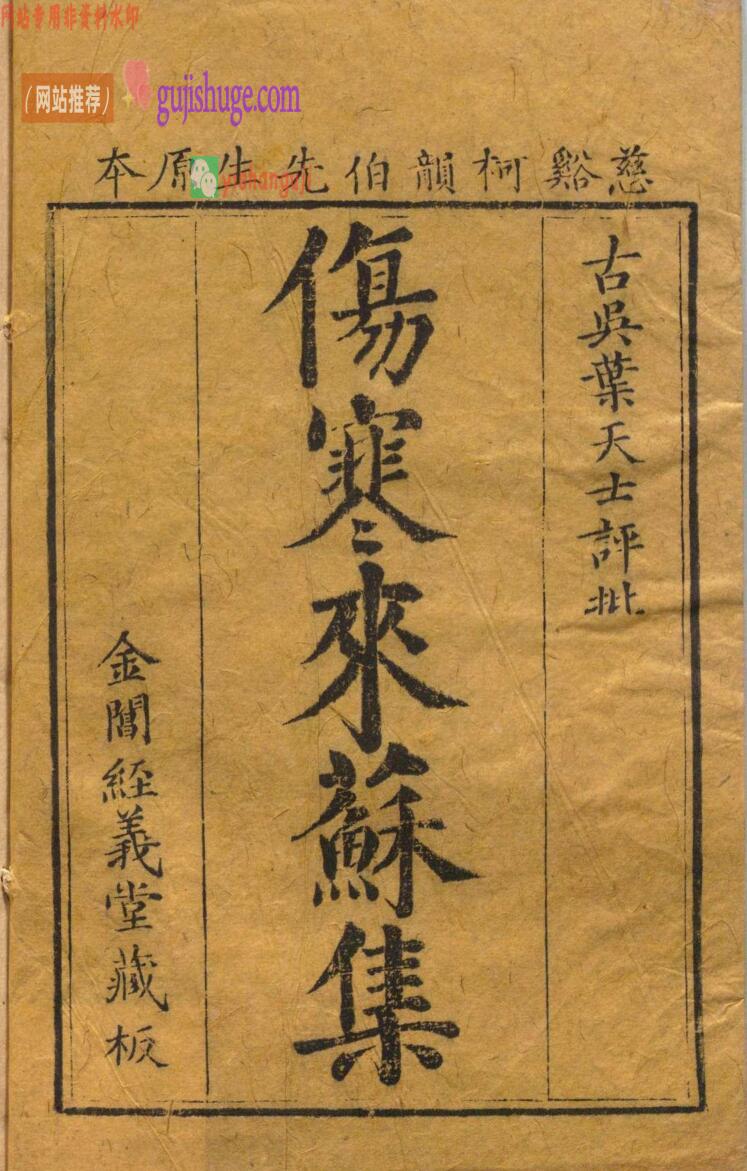 网站专用非资料水印
（网站推荐）
gujishuge.com
慈谿柯韻伯先生原本
古吳葉天士評批
傷寒來蘇集
金閶經義堂藏板